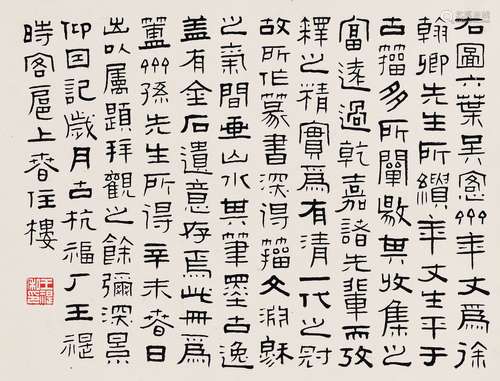 右圖六葉吳愙齋年丈爲徐
翰卿先生所繢年丈生平于
古籀多所闡敭其收集之
富遠過乾嘉諸先輩而攷
釋之精實爲有清一代之冠
故所作篆書深得籀文淵
之氣間畫山水其筆墨古逸
蓋有金石遺意存焉此冊爲
簠齋孫先生所得辛未春日
出以屬題拜觀之餘彌深景
仰因記歲月古杭福厂王禔
時客扈上春住樓
王禔